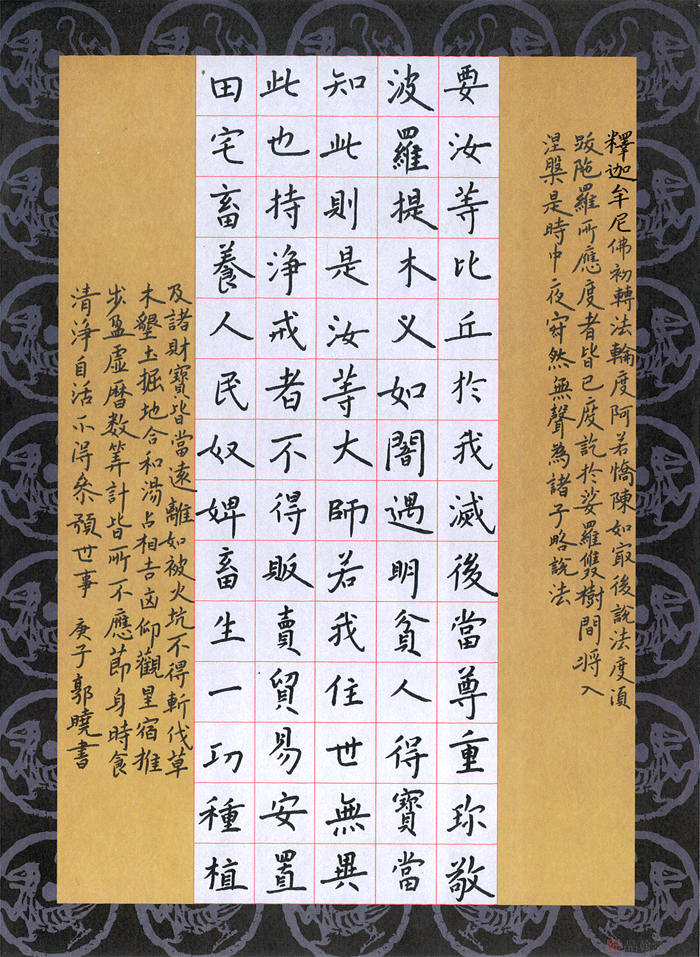 釋迦牟尼佛初轉法輪度阿若憍陳如㝡後說法度湏
跋陁羅所應度者皆已度訖於娑羅雙樹間将入
涅槃是時中夜寂然無聲為諸子略說法
要汝等比丘於我滅後當尊重珎敬
波羅提木义如闇遇明貧人得寶當
知此則是汝等大師若我住世無異
此也持淨戒者不得販賣貿易安置
田宅畜養人民奴婢畜生一切種植
及諸財寶皆當遠離如被火坑不得斬伐草
木墾土掘地合和湯占相吉凶仰觀星宿推
步盈虛曆数筭計皆所不應莭身時食
清淨自活不得叅預世事 庚子郭曉書